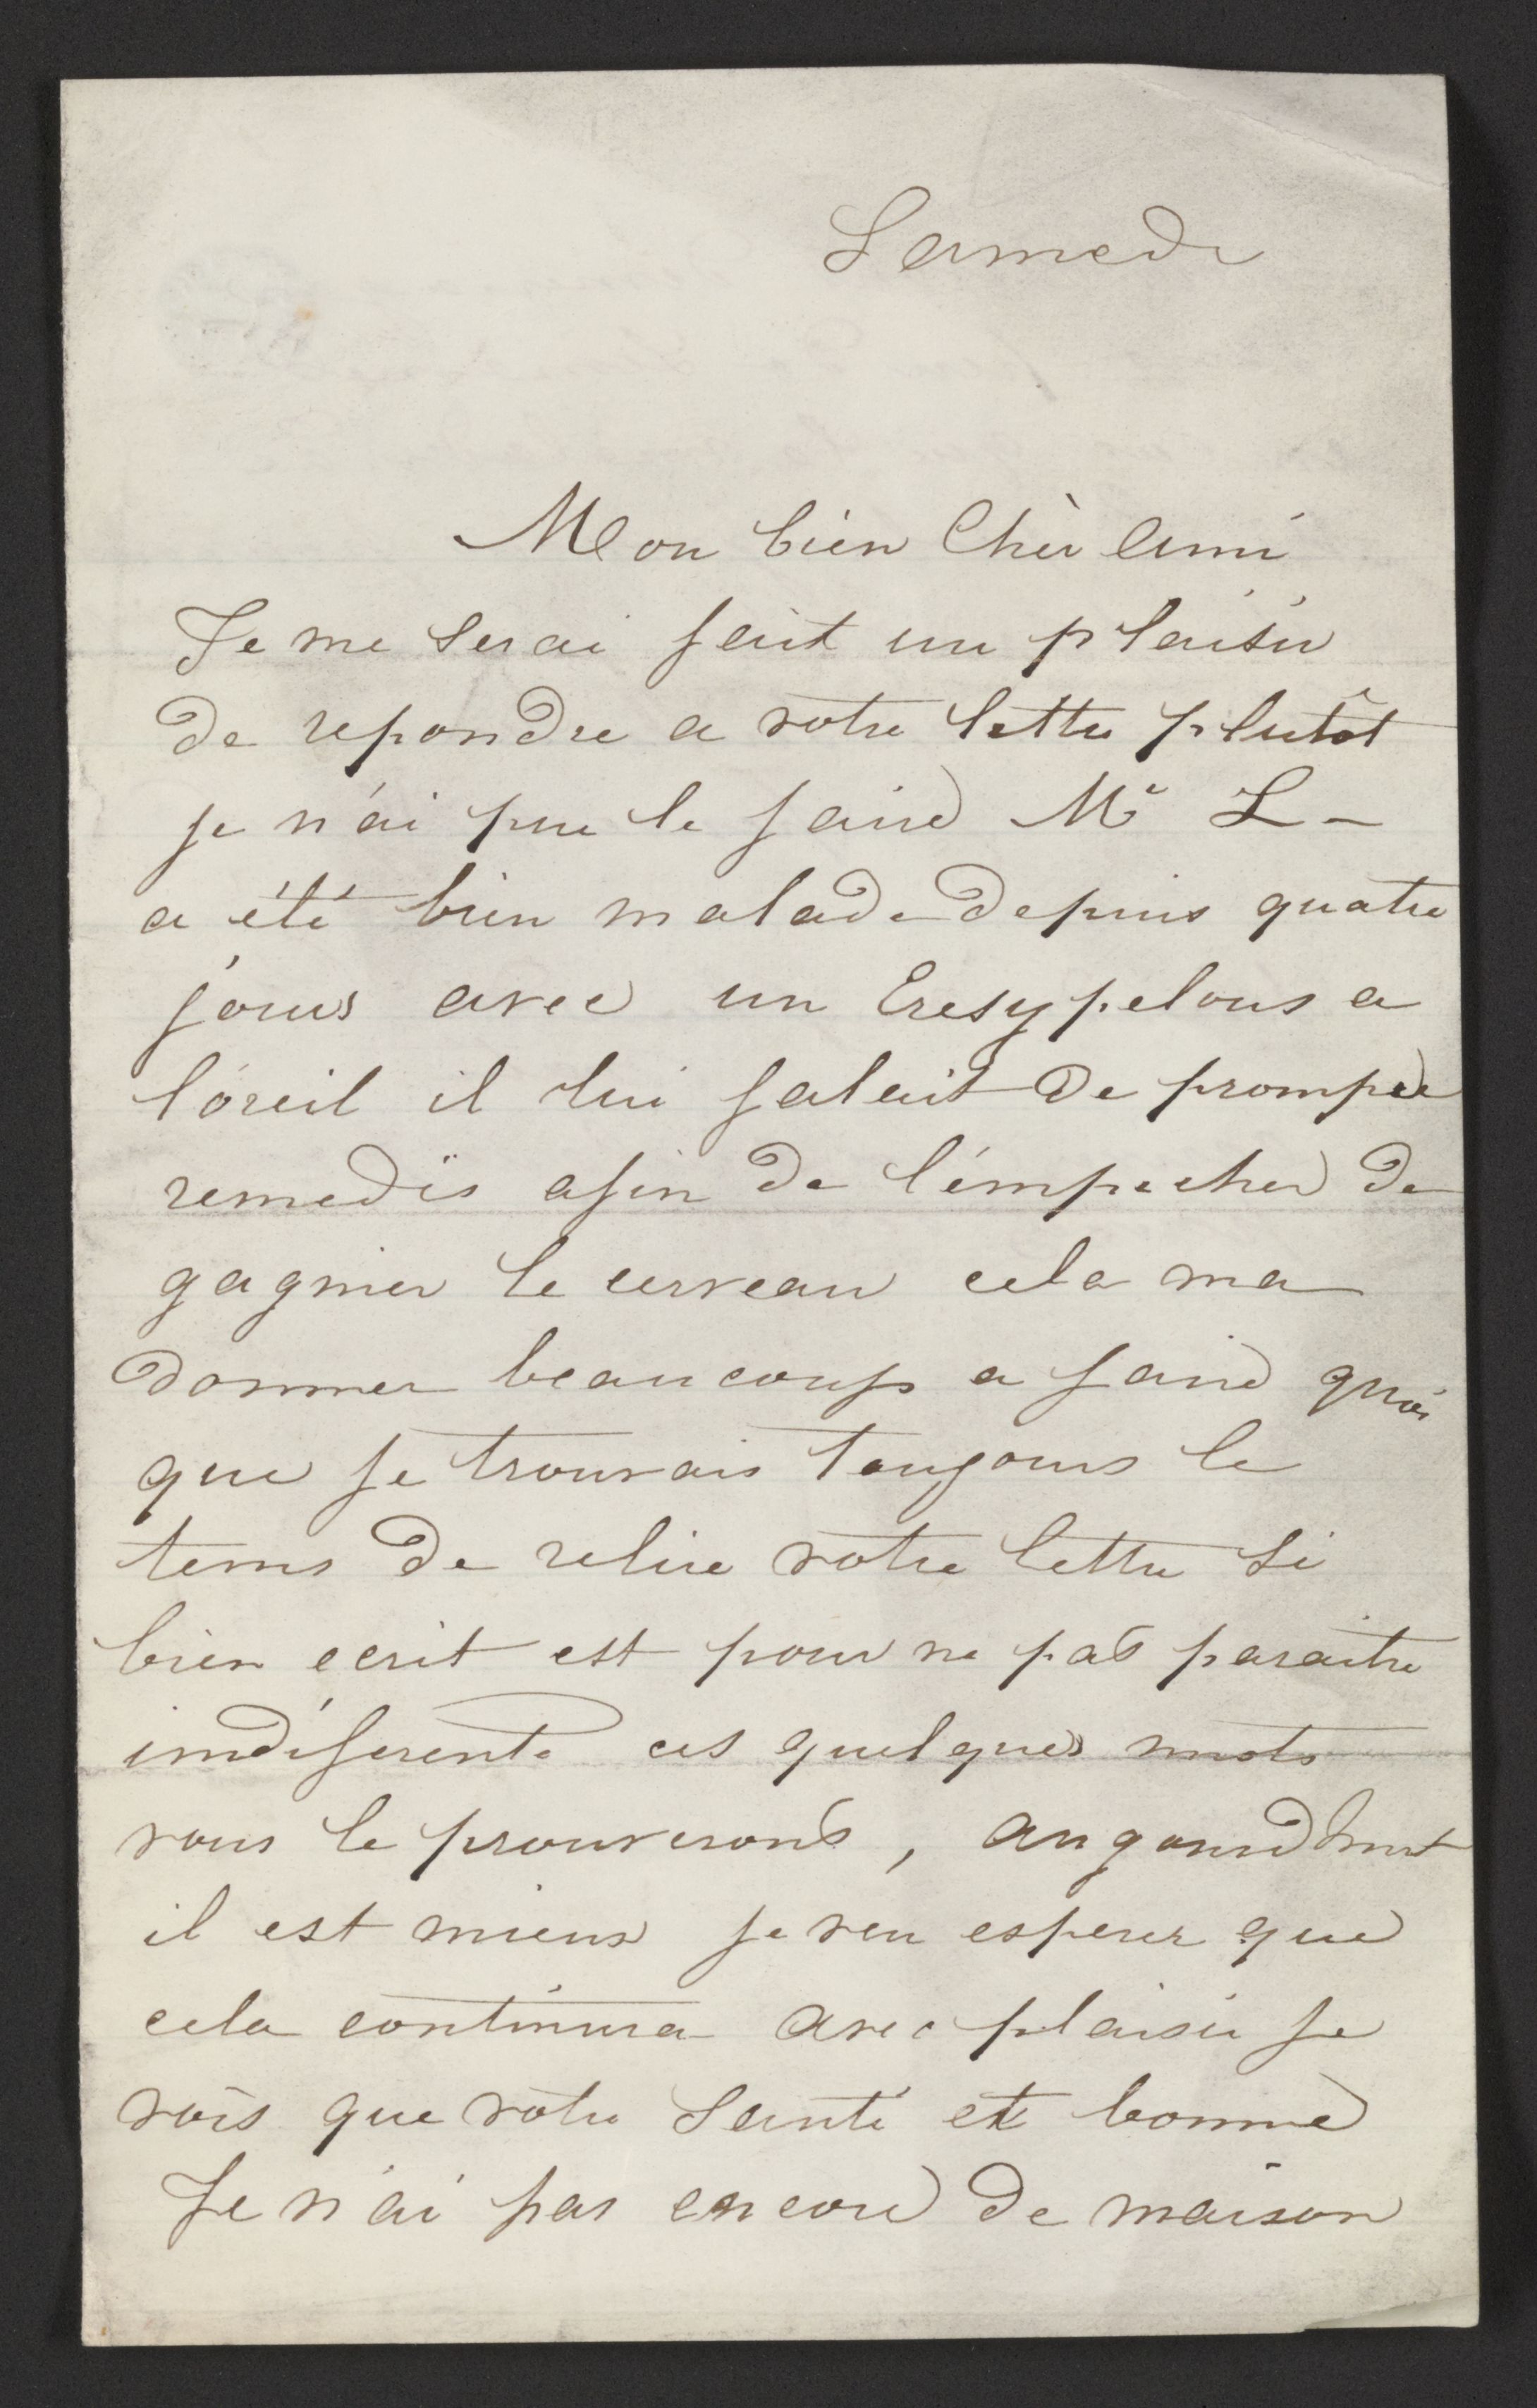 Samedi
Mon bien Chèr ami
Je me serai fait un plaisir
de repondre a votre lettre plutôt
je n'ai pue le faire Mr L-
a été bien malade depuis quatre
jours avec un Eresypelous a
l'oreil il lui falait de prompte
remedis afin de l'émpecher de
gagner le cerveau cela ma
donner beaucoup a faire quoi
que je trouvais toujours le
tems de relire votre lettre si
bien ecrit est pour ne pas paraitre
indiferente ces quelques mots
vous le prouverons, augourdhuit
il est mieux je veu esperer que
cela continura avec plaisir je
vois que votre santé et bonne
Je n'ai pas encore de maison